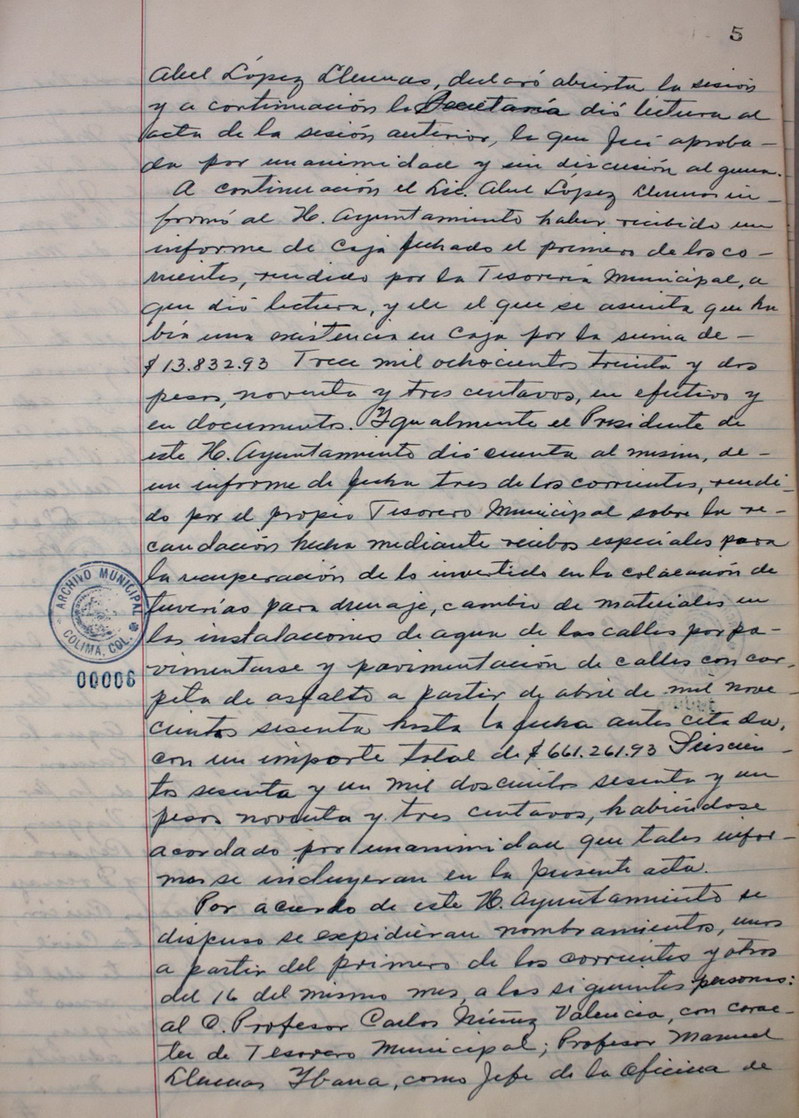 5
Abel López Llerenas, declaró abierta la sesión
y a continuación la Secretaría dió lectura al
acta de la sesión anterior, la que fué aproba-
da por unanimidad y sin discusión alguna.
A continuación el Lic. Abel López Llerenas in-
formó al H. Ayuntamiento haber recibido un
informe de Caja fechado el primero de los co-
rrientes, rendido por la Tesorería Municipal, a
que dió lectura, y en el que se asienta que ha
bía una existencia en Caja por la suma de-
$13.832.93 Trece mil ochocientos treinta y dos
pesos, noventa y tres centavos, en efectivo y
en documentos. Ygualmente el Presidente de
este H. Ayuntamiento dió cuenta al mismo, de-
un informe de fecha tres de los corrientes, rendi-
do por el propio Tesorero Municipal sobre la re-
caudación hecha mediante recibos especiales para
la recuperación de lo invertido en la colocación de
tuverías para drenaje, cambio de materiales en
las instalaciones de agua de las calles por pa-
vimentarse y pavimentación de calles con car-
peta de asfalto a partir de abril de mil nove-
cientos sesenta hasta la fecha antes citada,
con un importe total de $661.261.93 Seiscien-
tos sesenta y un mil doscientos sesenta y un
pesos noventa y tres centavos, habiéndose
acordado por unanimidad que tales infor-
mes se incluyeran en la presente acta.
Por acuerdo de este H. Ayuntamiento se
dispuso se expidieran nombramientos, unos
a partir del primero de los corrientes y otros
del 16 del mismo mes, a las siguientes personas:
al C. Profesor Carlos Núñez Valencia, con carac-
ter de Tesorero Municipal; Profesor Manuel
Llerenas Ybarra, como Jefe de la Oficina de
ARCHIVO MUNICIPAL
COLIMA, COL.
00006